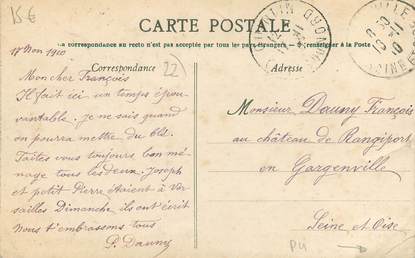 15€
CARTE POSTALE
La correspondance au recto n'est pas acceptée par tous les pays étrangers renseigner à la Poste
Correspondance
22
Adresse
18 Nov 1910
Mon cher François
Il fait ici un temps épou-
vantable. Je ne sais quand
on pourra mettre du blé.
Faites vous toujours bon mé-
nage tous les deux. Joseph
et petit Pierre étaient à Ver-
sailles Dimanche, ils ont écrit
Nous t'embrassons tous
P. Dauny
Monsieur Dauny François
au château de Rangiport
en Gargenville
Seine et Oise